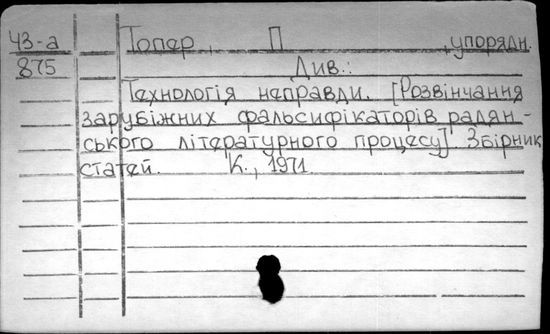 43-а Топер, П , упорядн.
875 Див.:
Технологія неправди. [Розвінчання
зарубіжних фальсифікаторів радян-
ського літературного процесу]. Збірник
статей. К., 1971.